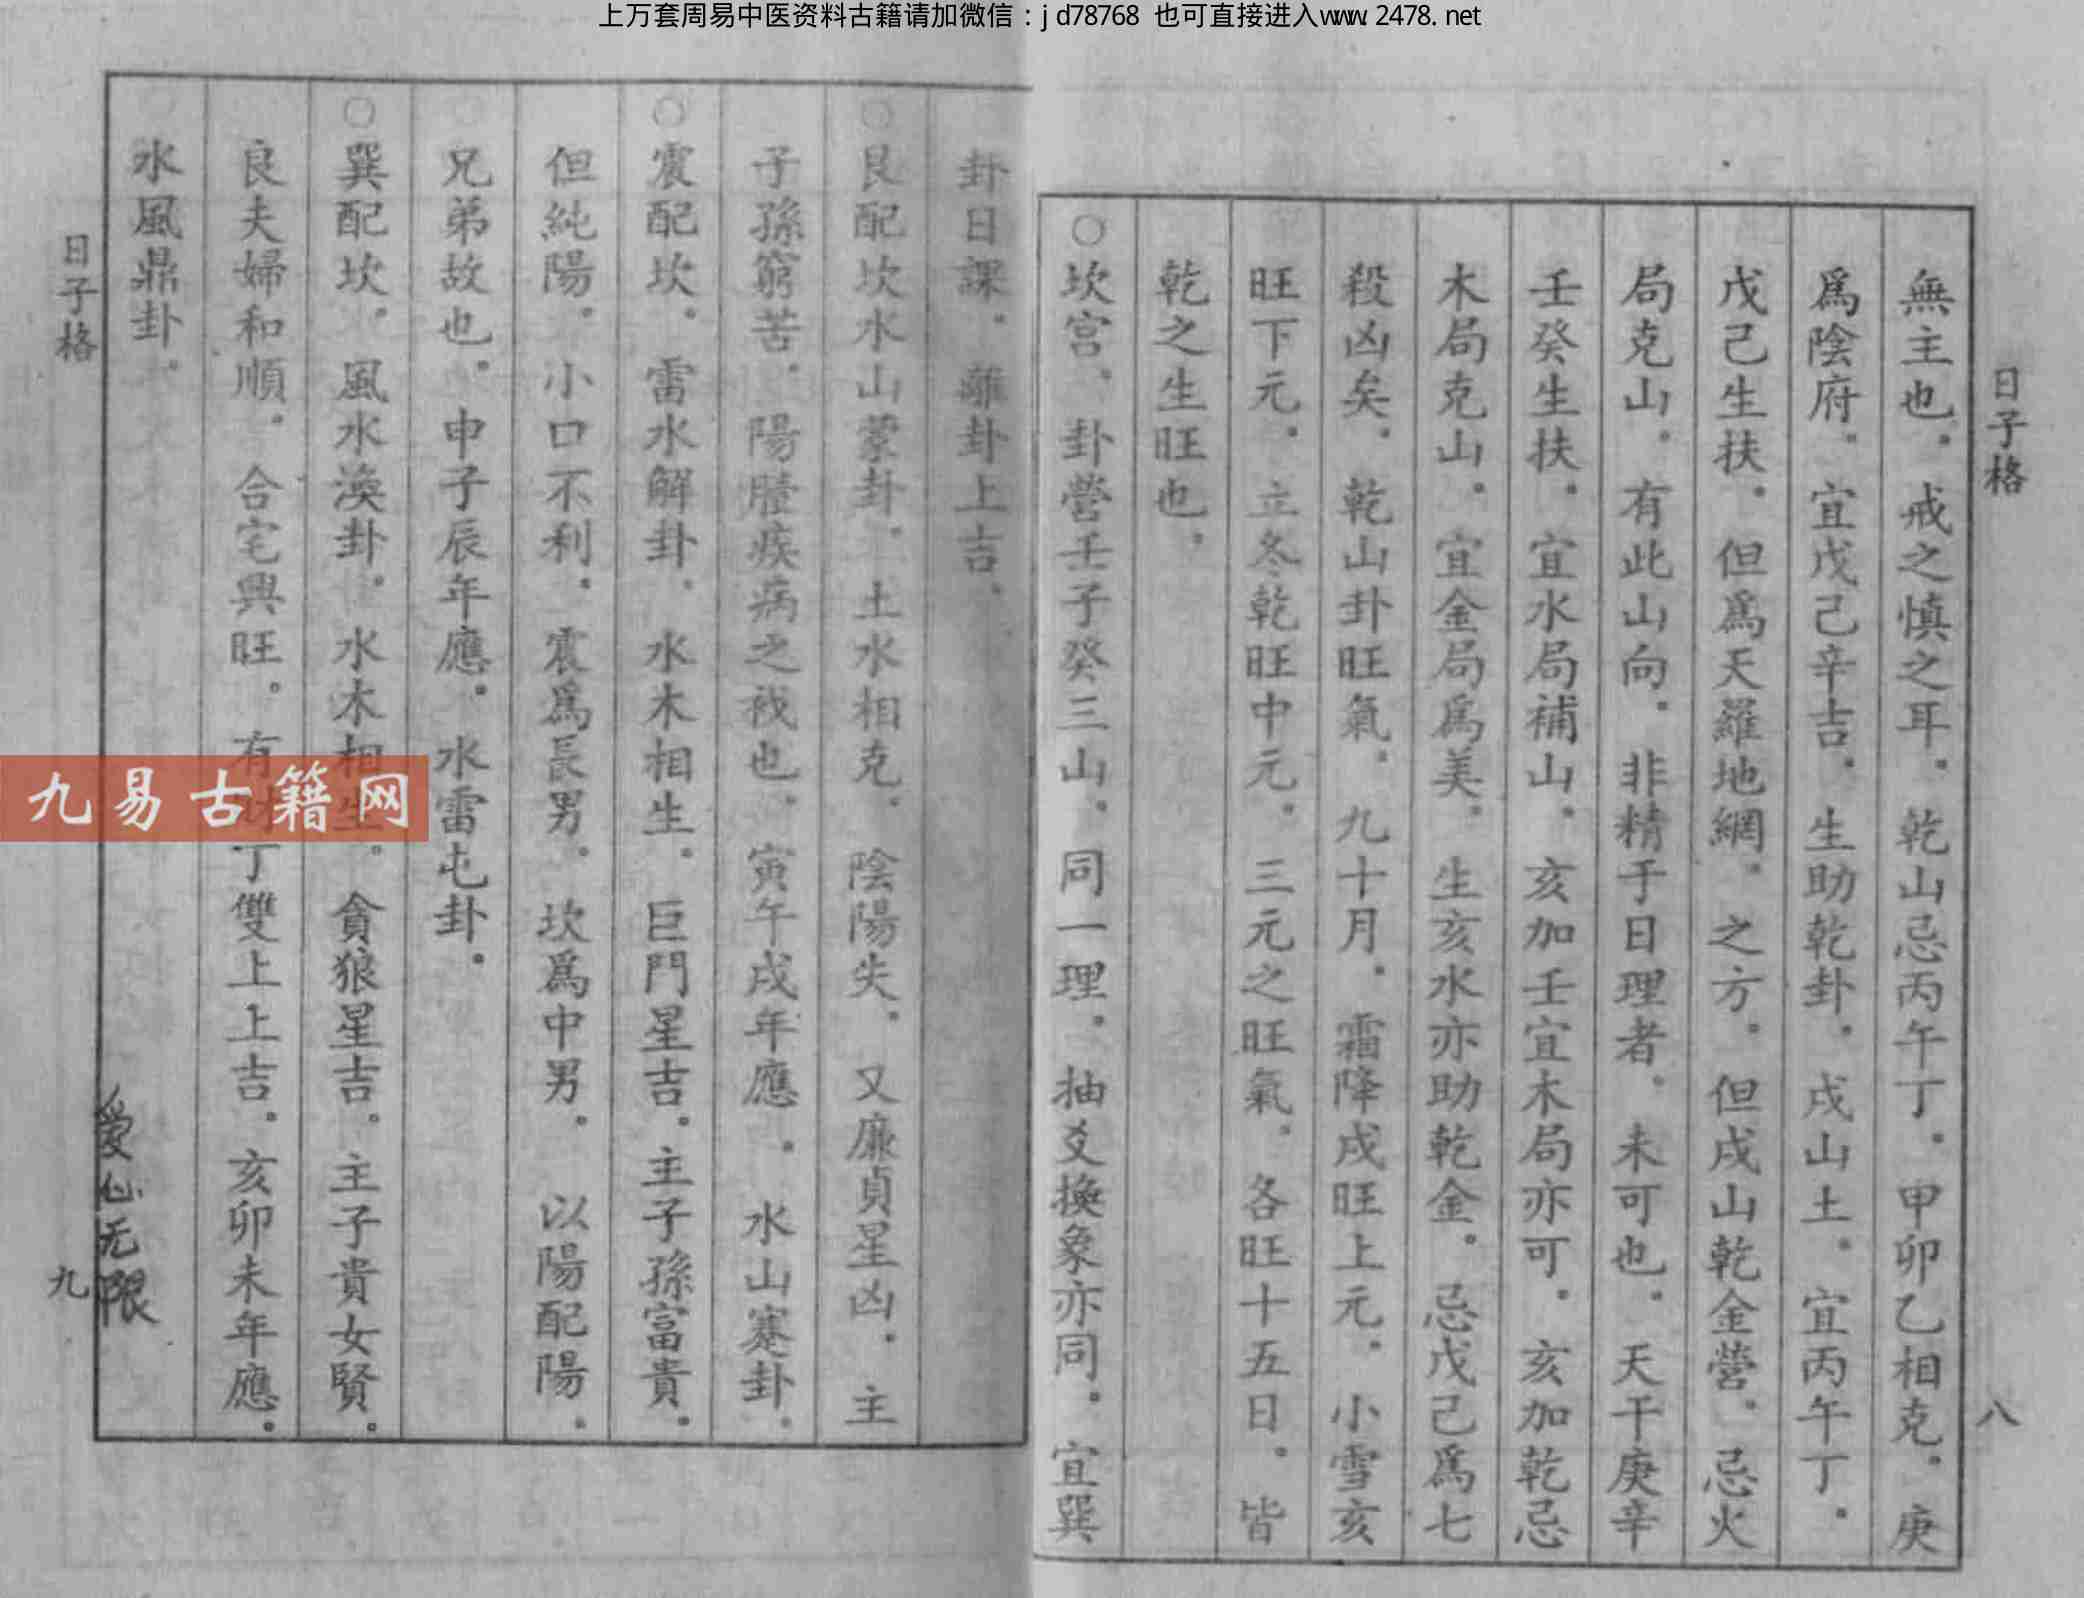 上万套周易中医资料古籍请加微信：jd78768 也可直接进入www.2478.net
日子格
八
無主也。戒之慎之耳。乾山忌丙午丁。甲卯乙相克。庚
爲陰府。宜戊己辛吉。生助乾卦。戌山土。宜丙午丁。
戊己生扶。但爲天羅地網。之方。但戌山乾金營。忌火
局克山。有此山向。非精于日理者。未可也。天干庚辛
壬癸生扶。宜水局補山。亥加壬宜木局亦可。亥加乾忌
木局克山。宜金局爲美。生亥水亦助乾金。忌戊己爲七
殺凶矣。乾山卦旺氣。九十月。霜降戌旺上元。小雪亥
旺下元。立冬乾旺中元。三元之旺氣。各旺十五日。皆
乾之生旺也。
○坎宮。卦營壬子癸三山。同一理。抽爻換象亦同。宜巽
卦日課。離卦上吉。
○艮配坎水山蒙卦。土水相克。陰陽失。又廉貞星凶。主
子孫窮苦。陽腫疾病之我也。寅午戌年應。水山蹇卦。
○震配坎。雷水解卦。水木相生。巨門星吉。主子孫富貴。
但純陽。小口不利。震爲長男。坎爲中男。以陽配陽。
兄弟故也。申子辰年應。水雷屯卦。
○巽配坎。風水渙卦。水木相生。貪狼星吉。主子貴女賢。
良夫婦和順。合宅興旺。有財丁雙上上吉。亥卯未年應。
水風鼎卦。
日子格
九
愛心无限
九易古籍网